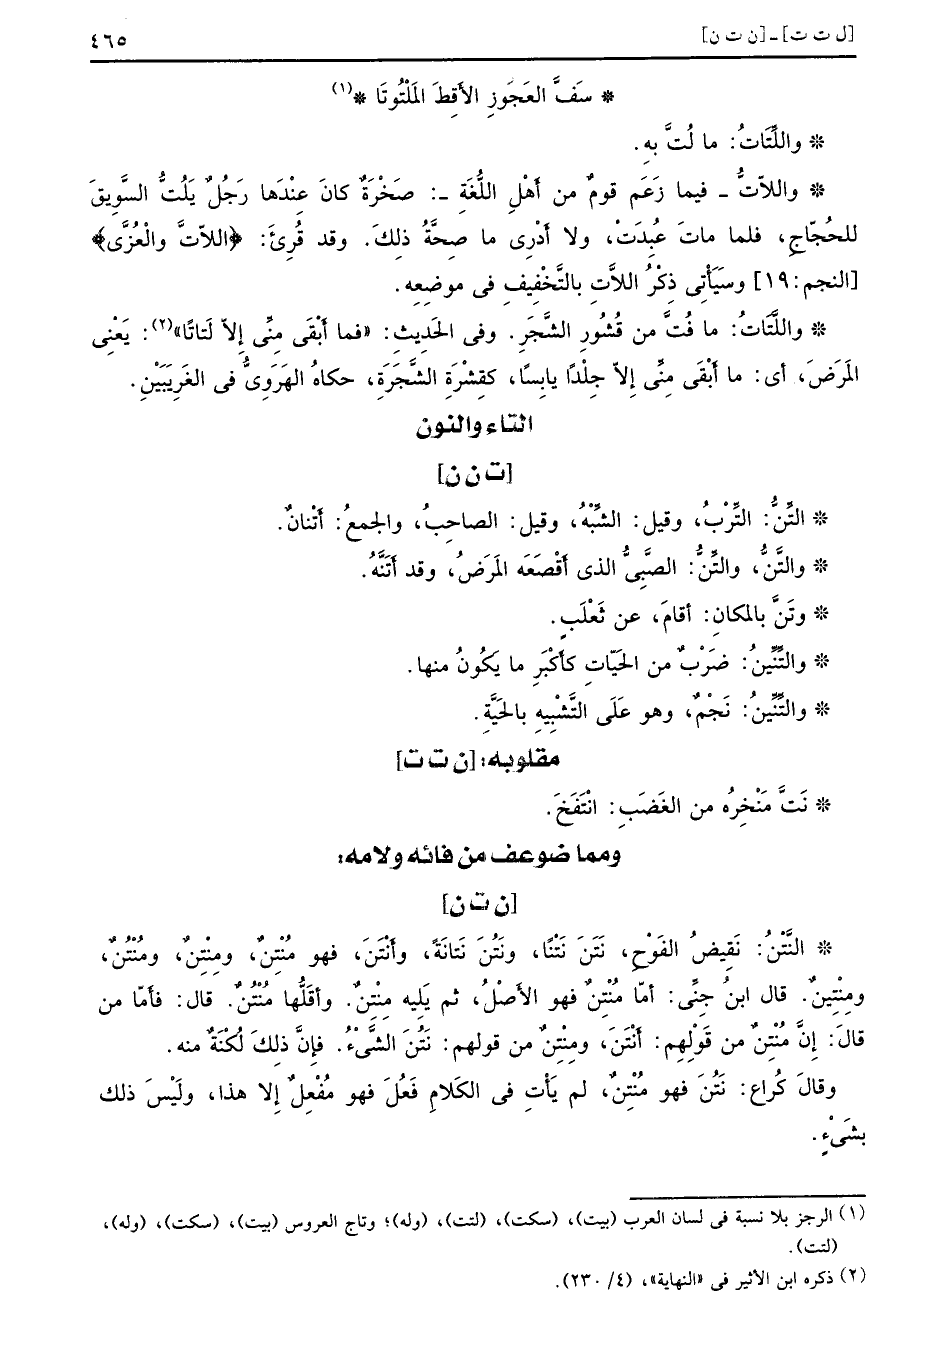 [ل ت ت] ـ [ن ت ن]
٤٦٥
* سَفَّ العَجَوزِ الأَقِطَ المَلْتُوتَا *(١)
* واللُّتَاتُ: ما لُتَّ به.
* واللاّتُّ ـ فيما زَعَم قومٌ من أَهْلِ اللُّغَةِ ـ: صَخْرَةٌ كانَ عِنْدَها رَجُلٌ يَلُتُّ السَّوِيقَ
للحُجّاجِ، فلما ماتَ عُبِدَتْ، ولا أَدْرِى ما صِحَّةُ ذلكَ. وقد قُرِئَ: ﴿اللاّتَّ والْعُزَّى﴾
[النجم: ١٩] وسَيَأْتِى ذكْرُ اللاَّتِ بالتَّخْفِيفِ فى موضعِه.
* واللَّتَاتُ: ما فُتَّ من قُشُورِ الشَّجَرِ. وفى الحَدِيث: «فما أَبْقَى مِنِّى إِلاّ لَتاتًا»(٢): يَعْنِى
المَرَضَ، أى: ما أَبْقَى مِنِّى إِلاّ جِلْدًا يابِسًا، كقِشْرَةِ الشَّجَرَةِ، حكاهُ الهَرَوِىُّ فى الغَرِيبَيْنِ.
التاء والنون
[ت ن ن]
* التِّنُّ: التِّرْبُ، وقيل: الشِّبْهُ، وقيل: الصاحِبُ، والجمعُ: أَتْنانٌ.
* والتَّنُّ، والتِّنُّ: الصَّبِىُّ الذى أَقْصَعَه المَرَضُ، وقد أَتَنَّهُ.
* وتَنَّ بالمكانِ: أقامَ، عن ثَعْلَبٍ.
* والتِّنِّينُ: ضَرْبٌ من الحَيّاتِ كأَكْبَرِ ما يَكُونُ منها.
* والتِّنِّينُ: نَجْمٌ، وهو عَلَى التَّشْبِيهِ بالحَيَّةِ.
مقلوبه: [ن ت ت]
* نَتَّ مَنْخِرُه من الغَضَبِ: انْتَفَخَ.
ومما ضوعف من فائه ولامه:
[ن ت ن]
* النَّتْنُ: نَقِيضُ الفَوْحِ، نَتَنَ نَتْنًا، ونَتُنَ نَتانَةً، وأَنْتَنَ، فهو مُنْتِنٌ، ومِنْتِنٌ، ومُنْتُنٌ،
ومِنْتِينٌ. قال ابنُ جِنِّى: أمّا مُنْتِنٌ فهو الأَصْلُ، ثم يَلِيه مِنْتِنٌ. وأَقَلُّها مُنْتُنٌ. قال: فأمّا من
قالَ: إنَّ مُنْتِنٌ من قَوْلِهِم: أَنْتَنَ، ومِنْتِنٌ من قولهم: نَتُنَ الشَّىْءُ. فإِنَّ ذلكَ لُكْنَةٌ منه.
وقالَ كُراع: نَتُنَ فهو مُنْتِنٌ، لم يَأْتِ فى الكَلامِ فَعُلَ فهو مُفْعِلٌ إلا هذا، ولَيْسَ ذلك
بشَىْءٍ.
(١) الرجز بلا نسبة فى لسان العرب (بيت)، (سكت)، (لتت)، (وله)؛ وتاج العروس (بيت)، (سكت)، (وله)،
(لتت).
(٢) ذكره ابن الأثير فى «النهاية»، (٤/ ٢٣٠).